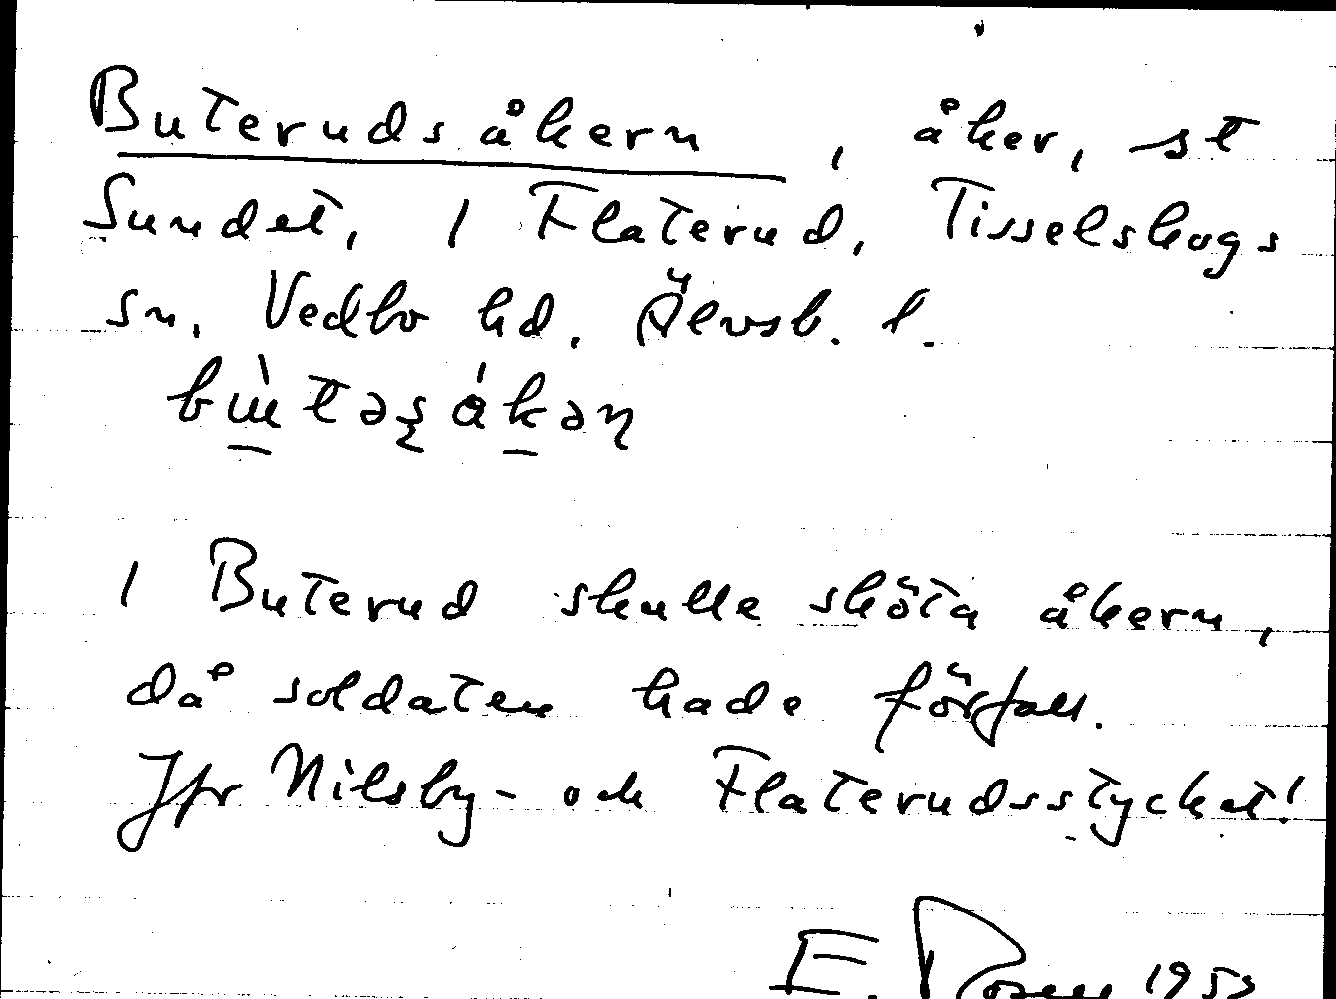 Buterudsåkern, åker, st
Sundet, 1 Flaterud, Tisselskogs
sn, Vedbo hd. Älvsb. l.
1 Buterud skulle sköta åkern,
då soldaten hade förfall.
Jfr Nilsby- och Flaterudsstycket!
E. 1953